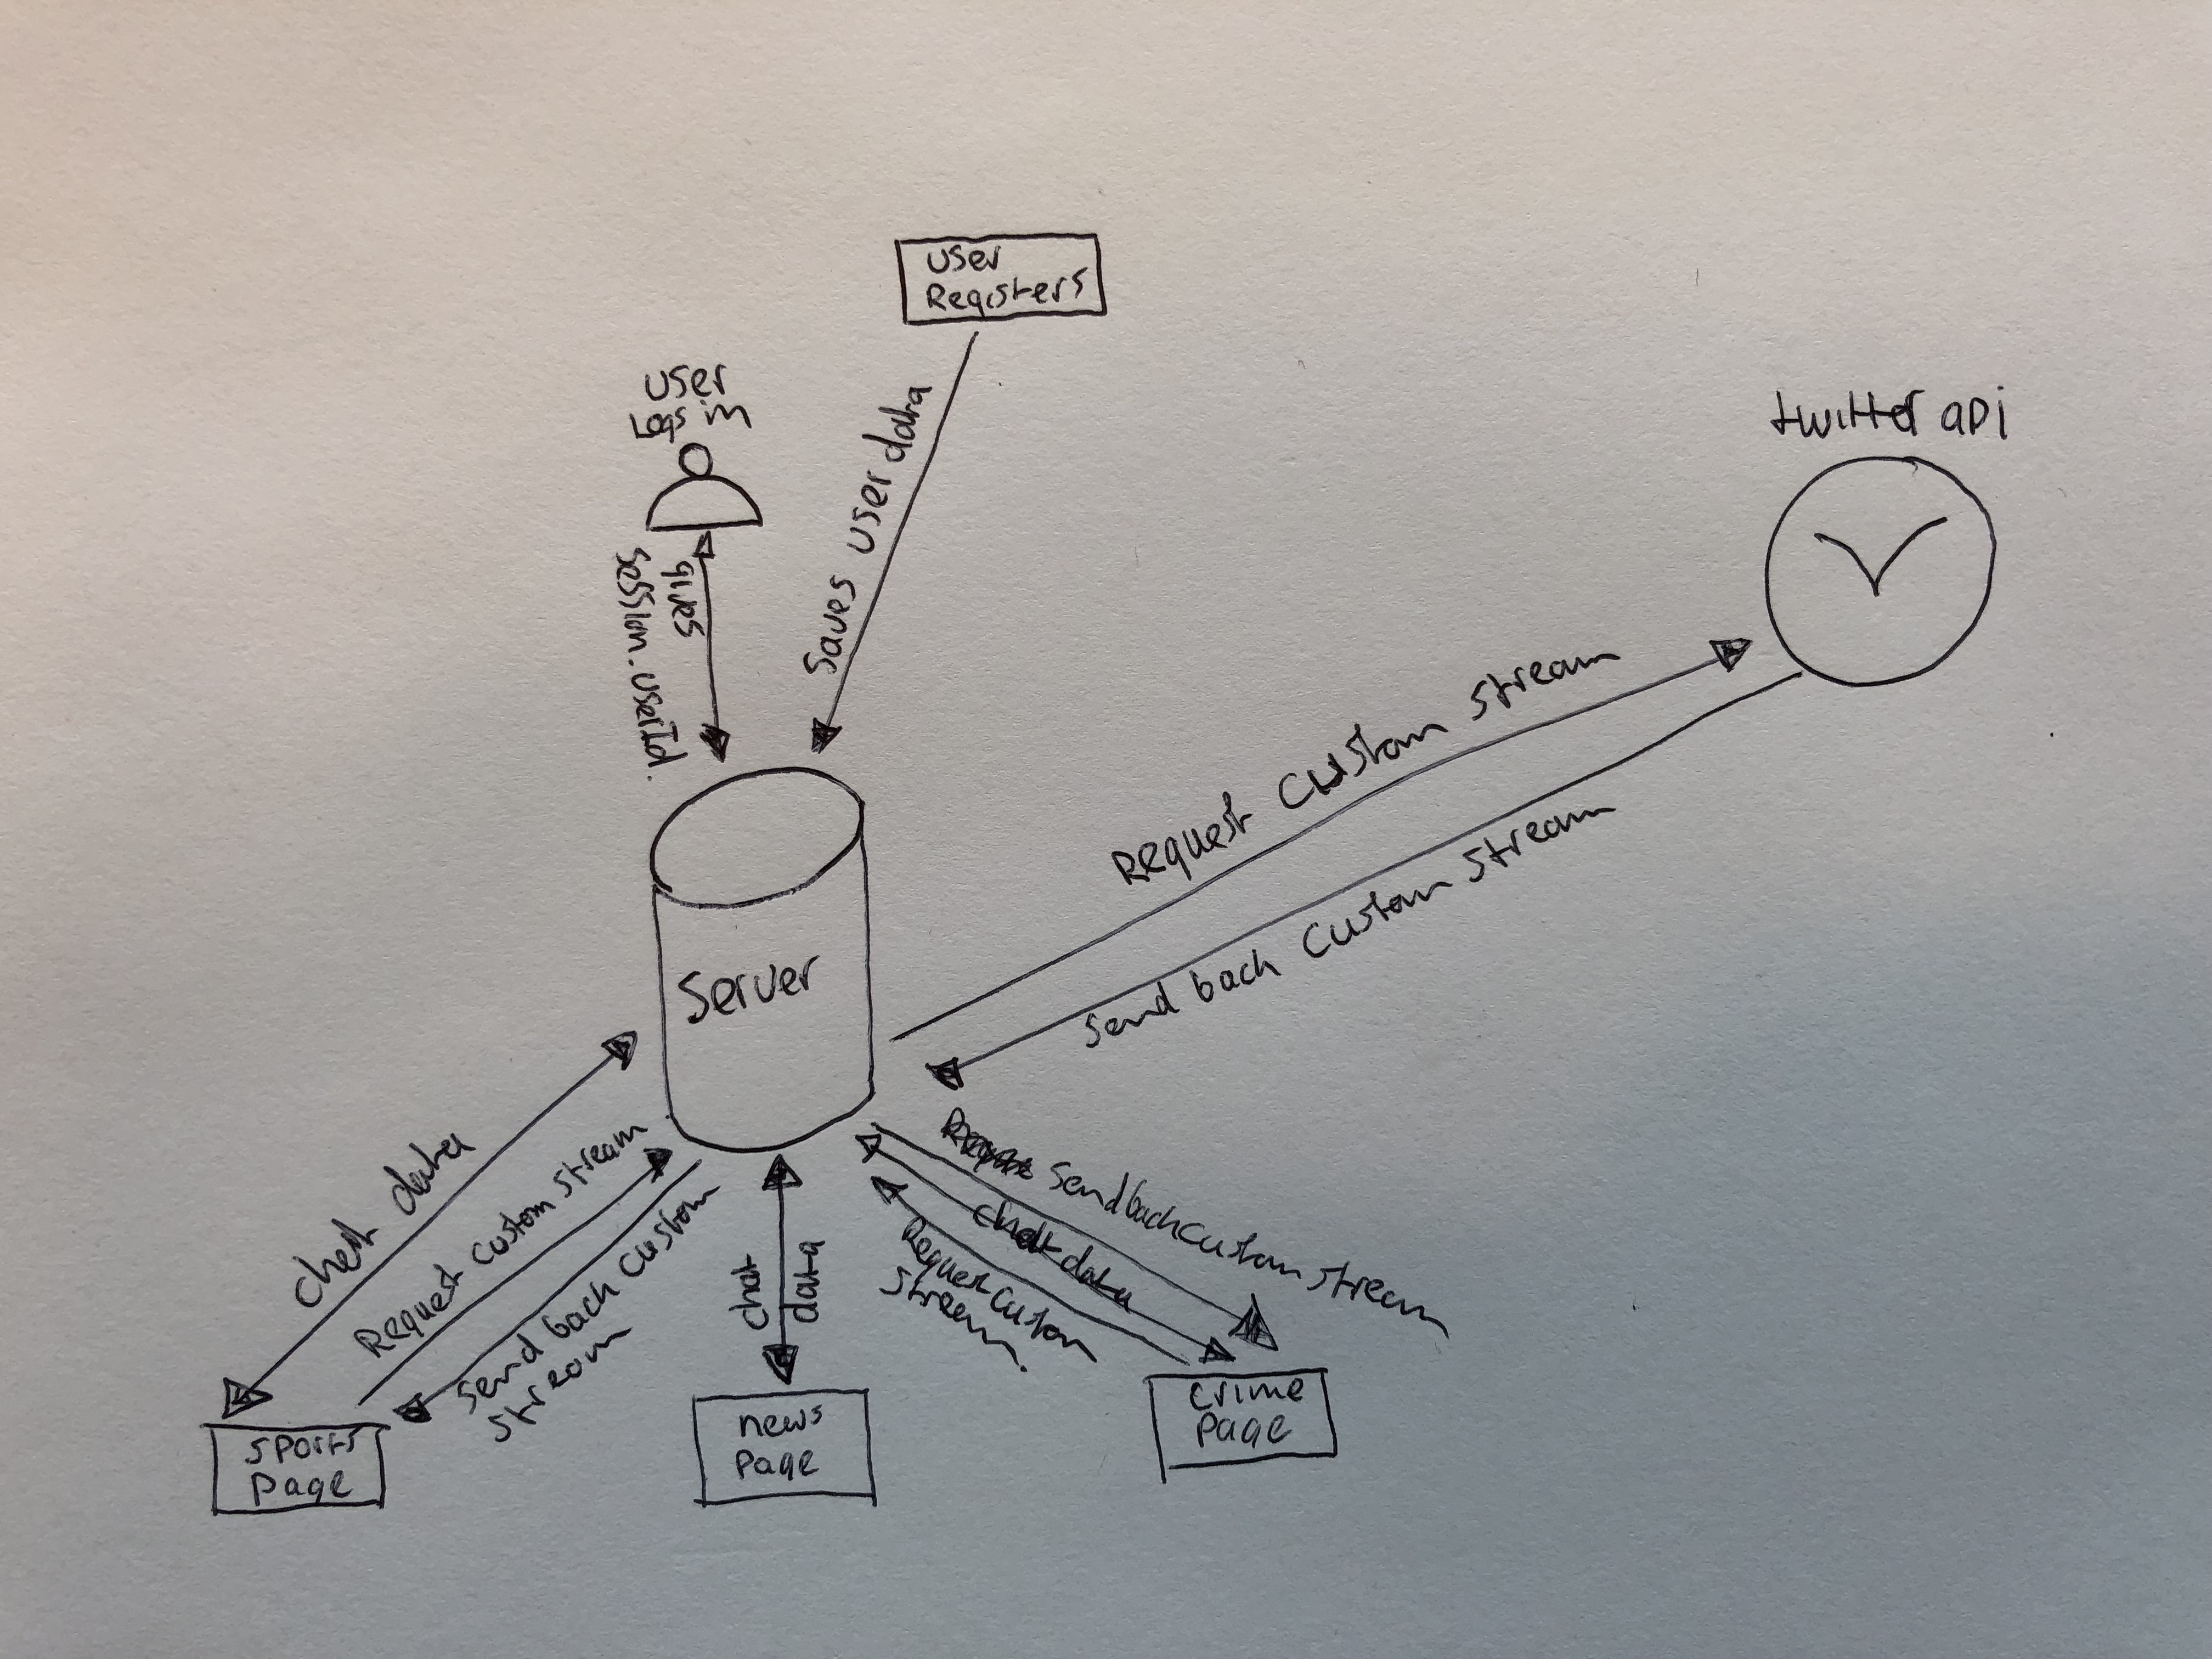 User
Registers
User
Logs in
Saves user data
gives
session.userId.
twitter api
Request custom stream
Send back custom stream
Server
chat data
Request custom stream
Send back custom
stream
chat
data
Send back custom stream
chat data
Request custom
stream.
sports
page
news
page
crime
page